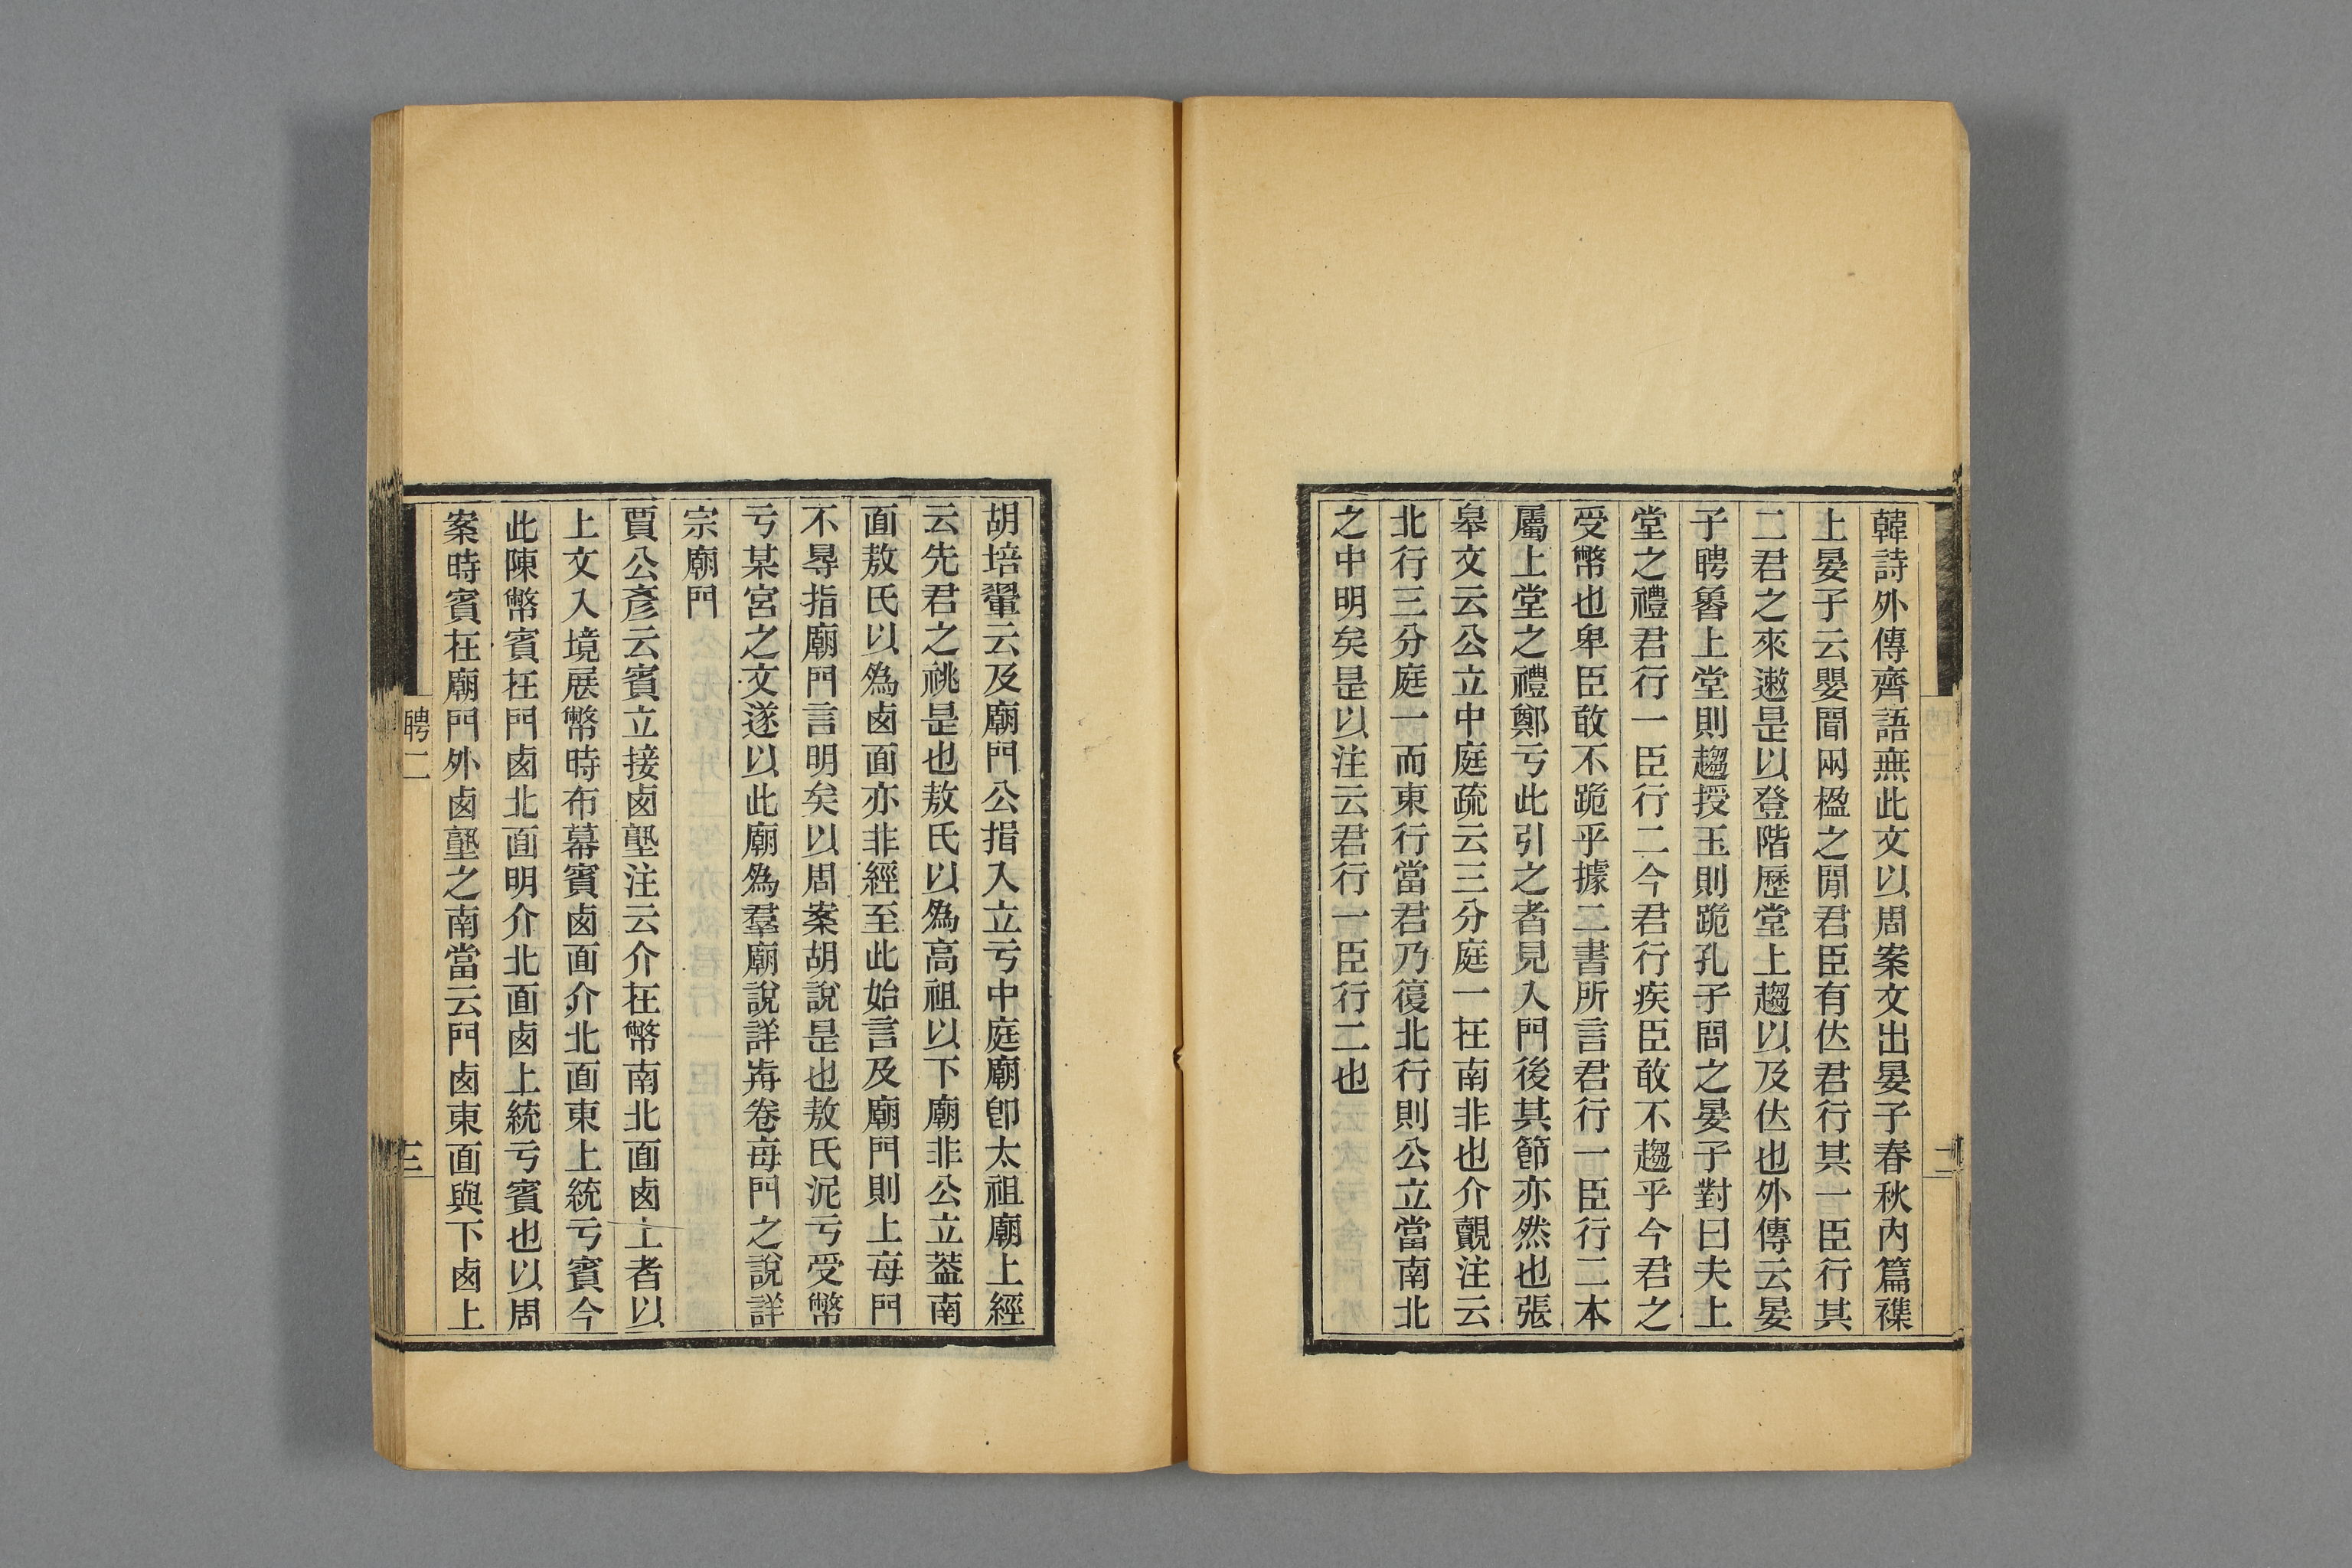 韓詩外傳齊語無此文以周案文出晏子春秋內篇襍
上晏子云嬰聞兩楹之閒君臣有位君行其一臣行其
二君之來遬是以登階歷堂上趨以及位也外傳云晏
子聘魯上堂則趨授玉則跪孔子問之晏子對曰夫上
堂之禮君行一臣行二今君行疾臣敢不趨乎今君之
受幣也卑臣敢不跪乎據二書所言君行一臣行二本
屬上堂之禮鄭亏此引之者見入門後其節亦然也張
皋文云公立中庭疏云三分庭一在南非也介覿注云
北行三分庭一而東行當君乃復北行則公立當南北
之中明矣是以注云君行一臣行二也
二
胡培翬云及廟門公揖入立亏中庭廟卽太祖廟上經
云先君之祧是也敖氏以為高祖以下廟非公立葢南
面敖氏以為鹵面亦非經至此始言及廟門則上每門
不得指廟門言明矣以周案胡說是也敖氏泥亏受幣
亏某宮之文遂以此廟為羣廟說詳歬卷每門之說詳
宗廟門
賈公彥云賓立接鹵塾注云介在幣南北面鹵上者以
上文入境展幣時布幕賓鹵面介北面東上統亏賓今
此陳幣賓在門鹵北面明介北面鹵上統亏賓也以周
案時賓在廟門外鹵塾之南當云門鹵東面與下鹵上
聘二
三